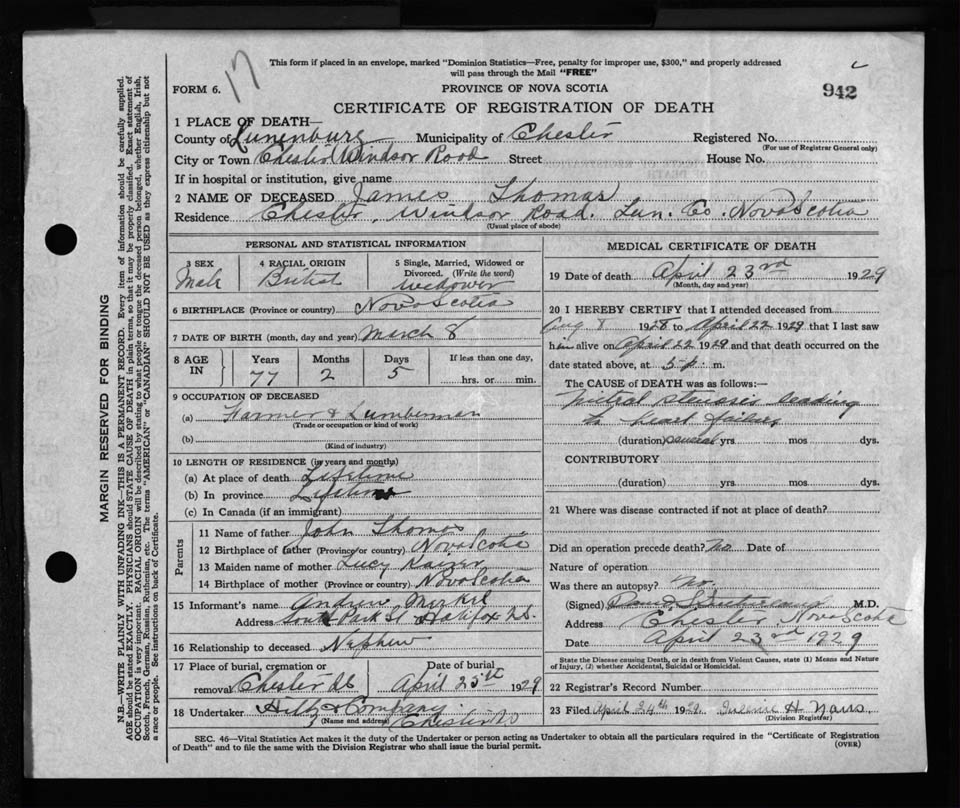 This form if placed in an envelope, marked "Dominion Statistics—Free, penalty for improper use, $300," and properly addressed
will pass through the Mail "FREE"
17
FORM 6.
PROVINCE OF NOVA SCOTIA
942
CERTIFICATE OF REGISTRATION OF DEATH
1 PLACE OF DEATH—
County of Lunenburg Municipality of Chester Registered No.
(For use of Registrar General only)
City or Town Chester Windsor Road Street House No.
If in hospital or institution, give name
2 NAME OF DECEASED James Thomas
Residence Chester, Windsor Road. Lun. Co. Nova Scotia
(Usual place of abode)
PERSONAL AND STATISTICAL INFORMATION
3 SEX
Male
4 RACIAL ORIGIN
British
5 Single, Married, Widowed or
Divorced. (Write the word)
widower
6 BIRTHPLACE (Province or country) Nova Scotia
7 DATE OF BIRTH (month, day and year) March 8
8 AGE IN
Years Months Days If less than one day,
77 2 5 hrs. or min.
9 OCCUPATION OF DECEASED
(a) Farmer & Lumberman
(Trade or occupation or kind of work)
(b)
(Kind of industry)
10 LENGTH OF RESIDENCE (in years and months)
(a) At place of death Lifetime
(b) In province Lifetime
(c) In Canada (if an immigrant)
Parents
11 Name of father John Thomas
12 Birthplace of father (Province or country) Nova Scotia
13 Maiden name of mother Lucy Kaizer
14 Birthplace of mother (Province or country) Nova Scotia
15 Informant's name Andrew
Address South Park St Halifax N.S.
16 Relationship to deceased Nephew
17 Place of burial, cremation or Date of burial
removal Chester April 25th 1929
18 Undertaker Hiltz & Company
(Name and address) Chester
MEDICAL CERTIFICATE OF DEATH
19 Date of death April 23rd 1929
(Month, day and year)
20 I HEREBY CERTIFY that I attended deceased from
Aug 8 1928 to April 22 1929 that I last saw
him alive on April 22 1929 and that death occurred on the
date stated above, at 5 p. m.
The CAUSE of DEATH was as follows:—
Mitral stenosis leading
to heart failure
(duration) several yrs. mos. dys.
CONTRIBUTORY
(duration) yrs. mos. dys.
21 Where was disease contracted if not at place of death?
Did an operation precede death? No Date of
Nature of operation
Was there an autopsy? No.
(Signed) M.D.
Address Chester Nova Scotia
Date April 23rd 1929
State the Disease causing Death, or in death from Violent Causes, state (1) Means and Nature
of Injury, (2) whether Accidental, Suicidal or Homicidal.
22 Registrar's Record Number
23 Filed April 24th 1929. H.
(Division Registrar)
SEC. 46—Vital Statistics Act makes it the duty of the Undertaker or person acting as Undertaker to obtain all the particulars required in the "Certificate of Registration
of Death" and to file the same with the Division Registrar who shall issue the burial permit.
(OVER)
MARGIN RESERVED FOR BINDING
N.B.—WRITE PLAINLY WITH UNFADING INK—THIS IS A PERMANENT RECORD. Every item of information should be carefully supplied.
AGE should be stated EXACTLY. PHYSICIANS should STATE CAUSE OF DEATH in plain terms, so that it may be properly classified. Exact statement of
OCCUPATION is very important. RACIAL ORIGIN will be described by stating to what people or tongue the deceased person belonged, whether English, Irish,
Scotch, French, German, Russian, Ruthenian, etc. The terms "AMERICAN" or "CANADIAN" SHOULD NOT BE USED as they express citizenship but not
a race or people. See instructions on back of Certificate.